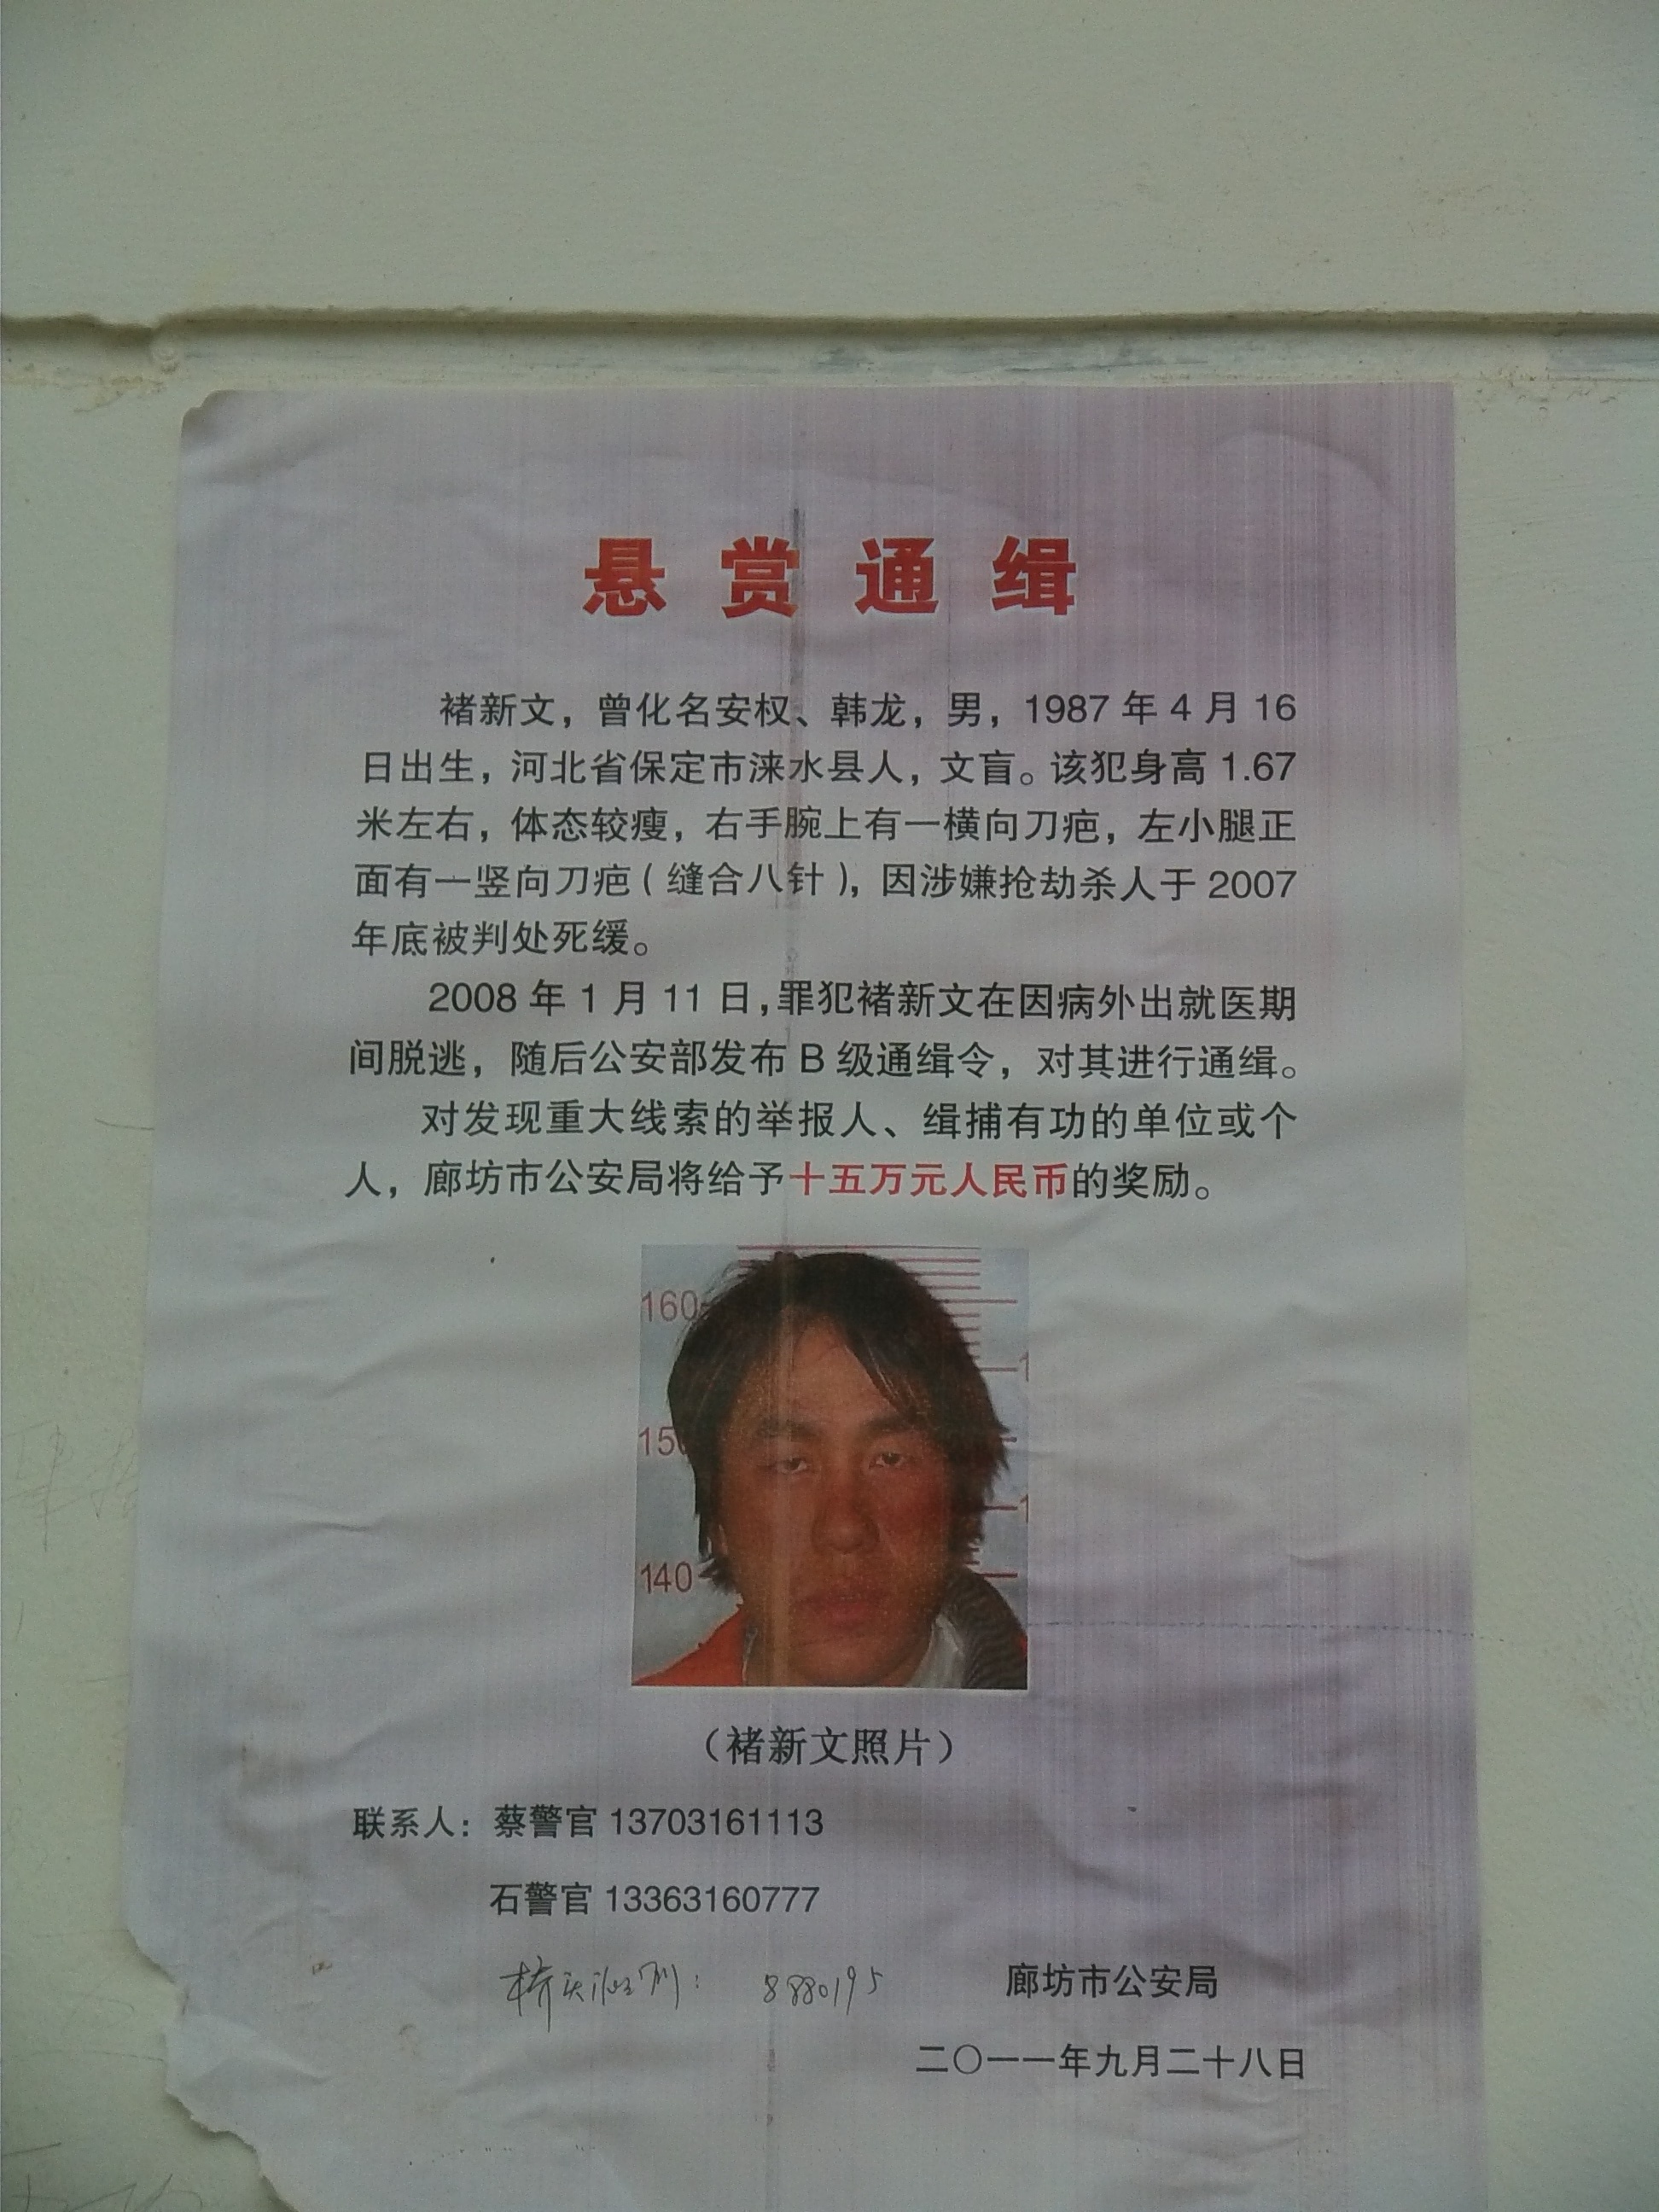 悬赏通缉
褚新文，曾化名安权、韩龙，男，1987 年 4 月 16
日出生，河北省保定市涞水县人，文盲。该犯身高 1.67
米左右，体态较瘦，右手腕上有一横向刀疤，左小腿正
面有一竖向刀疤（缝合八针），因涉嫌抢劫杀人于 2007
年底被判处死缓。
2008 年 1 月 11 日，罪犯褚新文在因病外出就医期
间脱逃，随后公安部发布 B 级通缉令，对其进行通缉。
对发现重大线索的举报人、缉捕有功的单位或个
人，廊坊市公安局将给予十五万元人民币的奖励。
160
15
140
（褚新文照片）
联系人：蔡警官 13703161113
石警官 13363160777
8880195
廊坊市公安局
二〇一一年九月二十八日